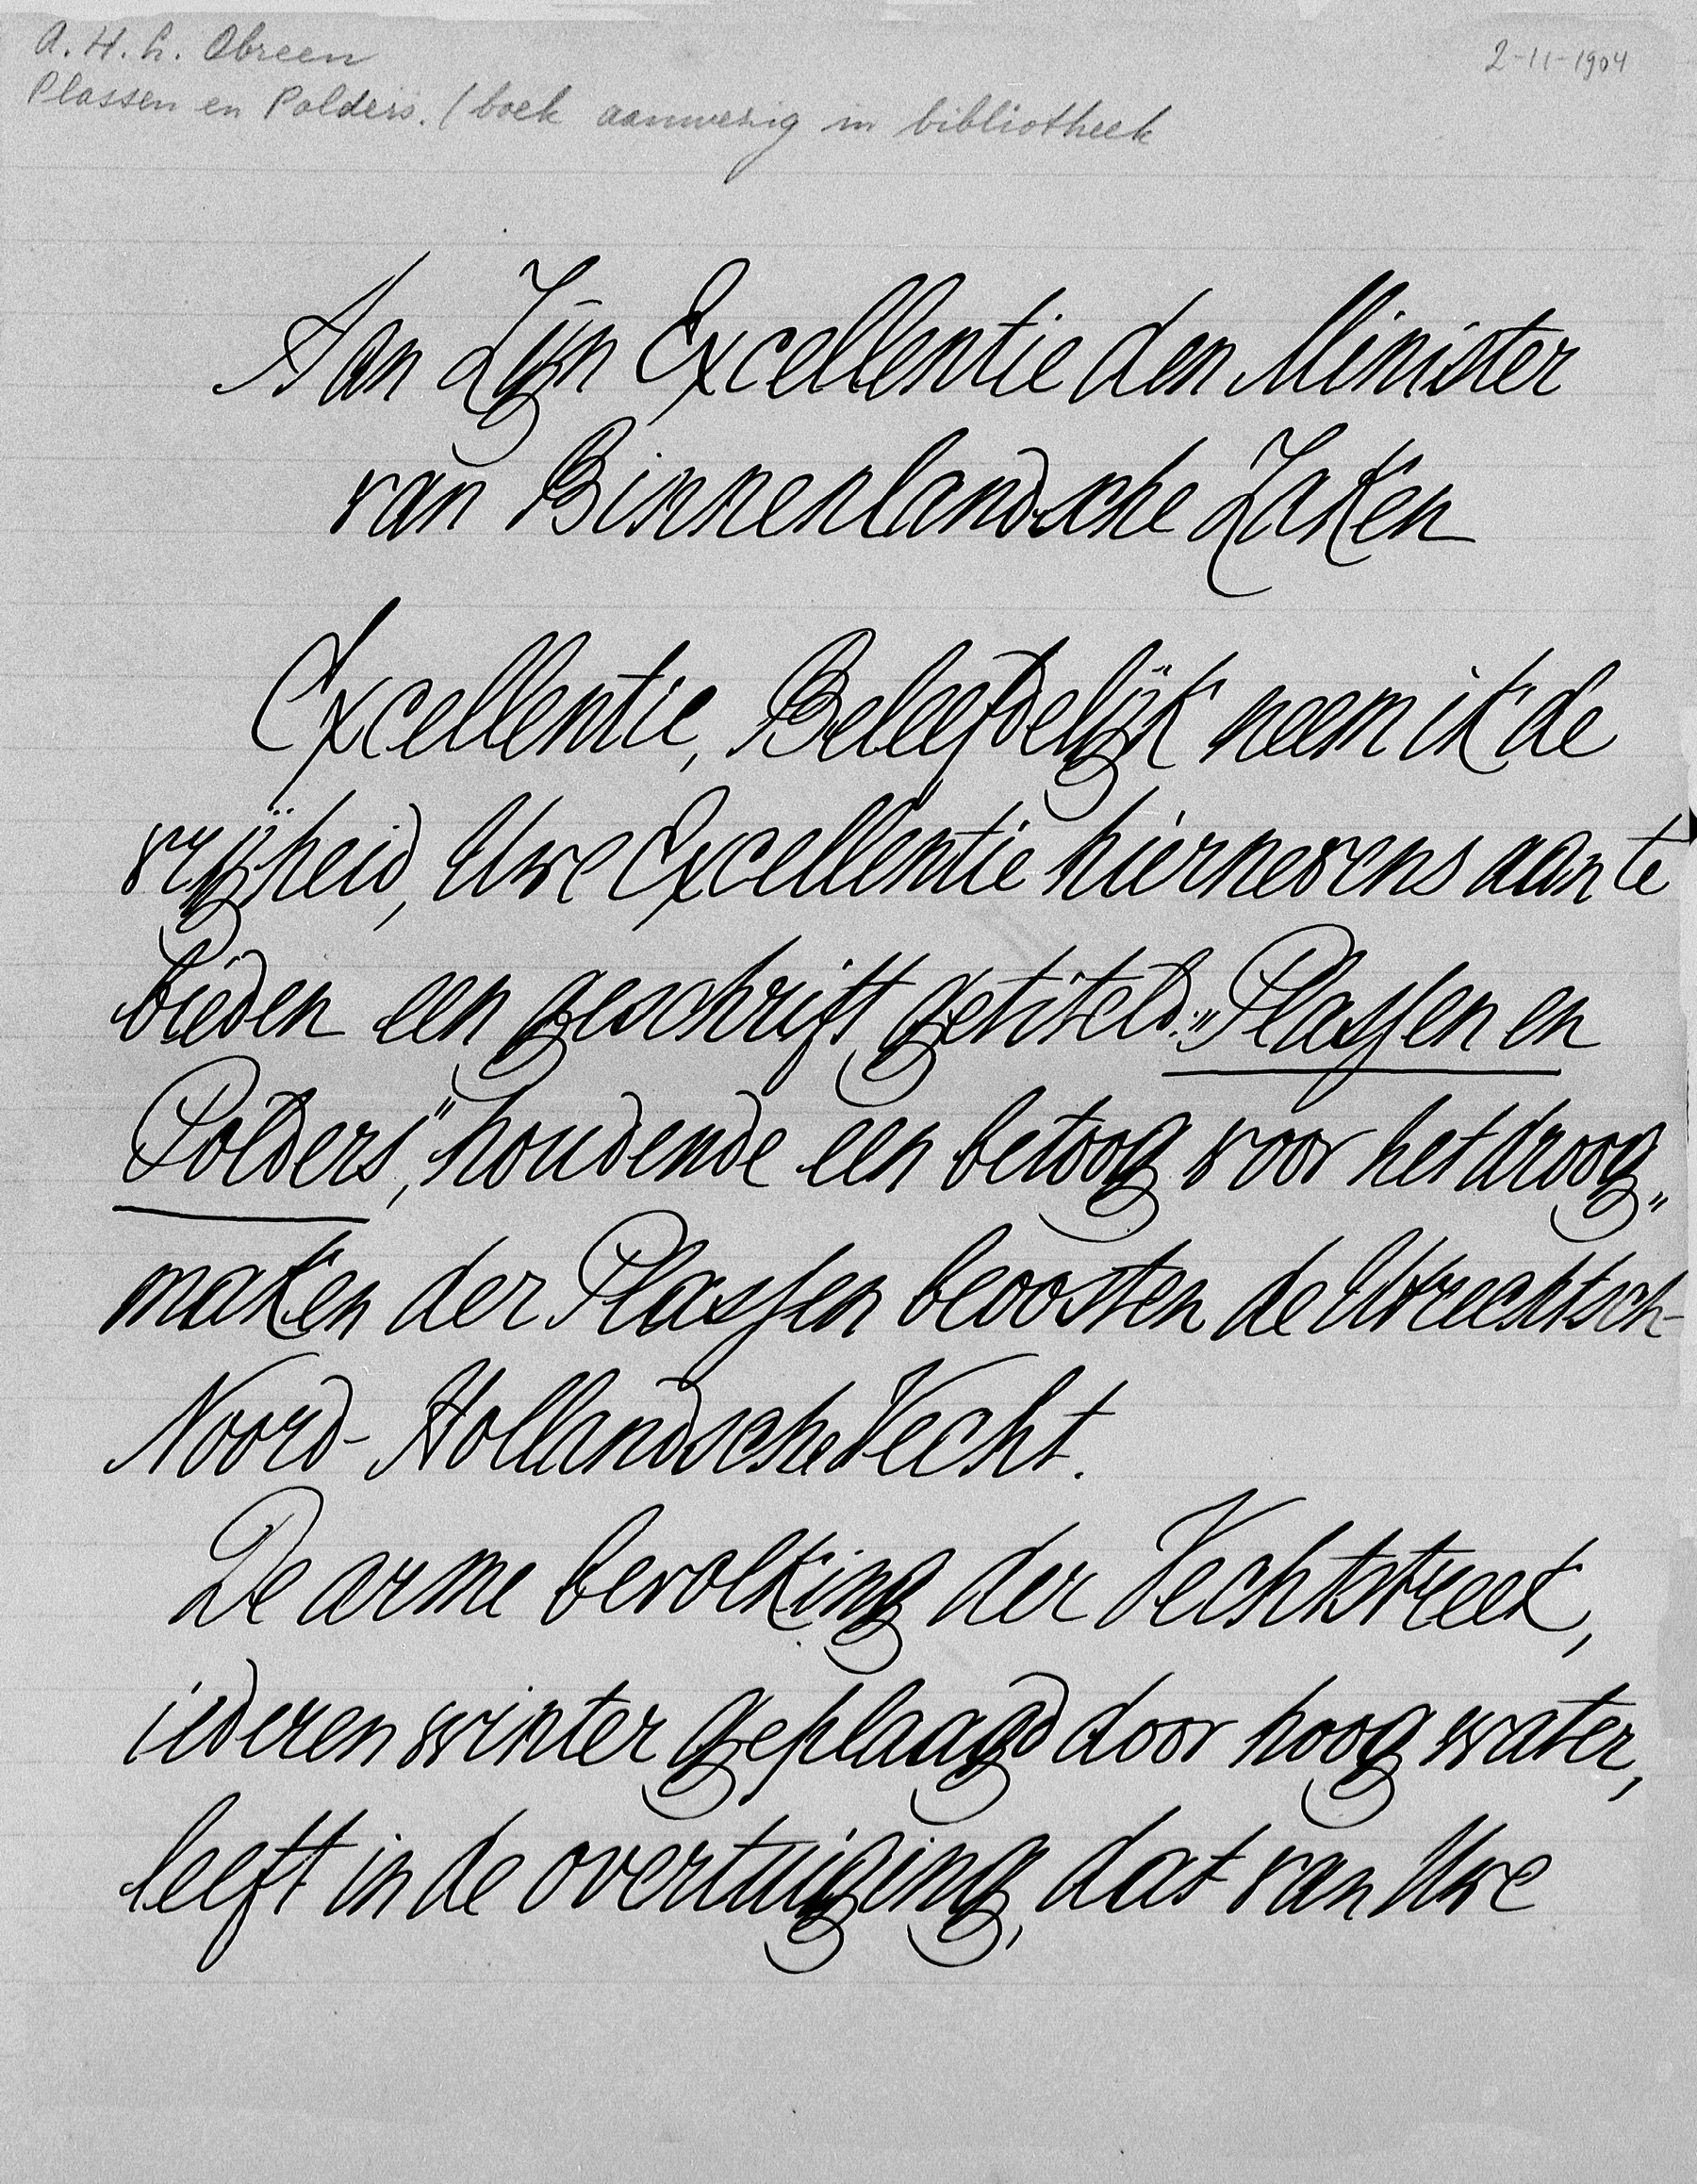 A. H. L. Obreen
2-11-1904
Plassen en Polders. (boek aanwezig in bibliotheek
Aan Zijn Excellentie den Minister
van Binnenlandsche Zaken
Excellentie, Beleefdelijk neem ik de
vrijheid, Uwe Excellentie hiernevens aan te
bieden een geschrift, getiteld: „Plassen en
Polders," houdende een betoog voor het droog„
maken der Plassen beoosten de Utrechtsch-
Noord-Hollandsche Vecht.
De arme bevolking der Vechtstreek,
iederen winter geplaagd door hoog water,
leeft in de overtuiging, dat van Uwe